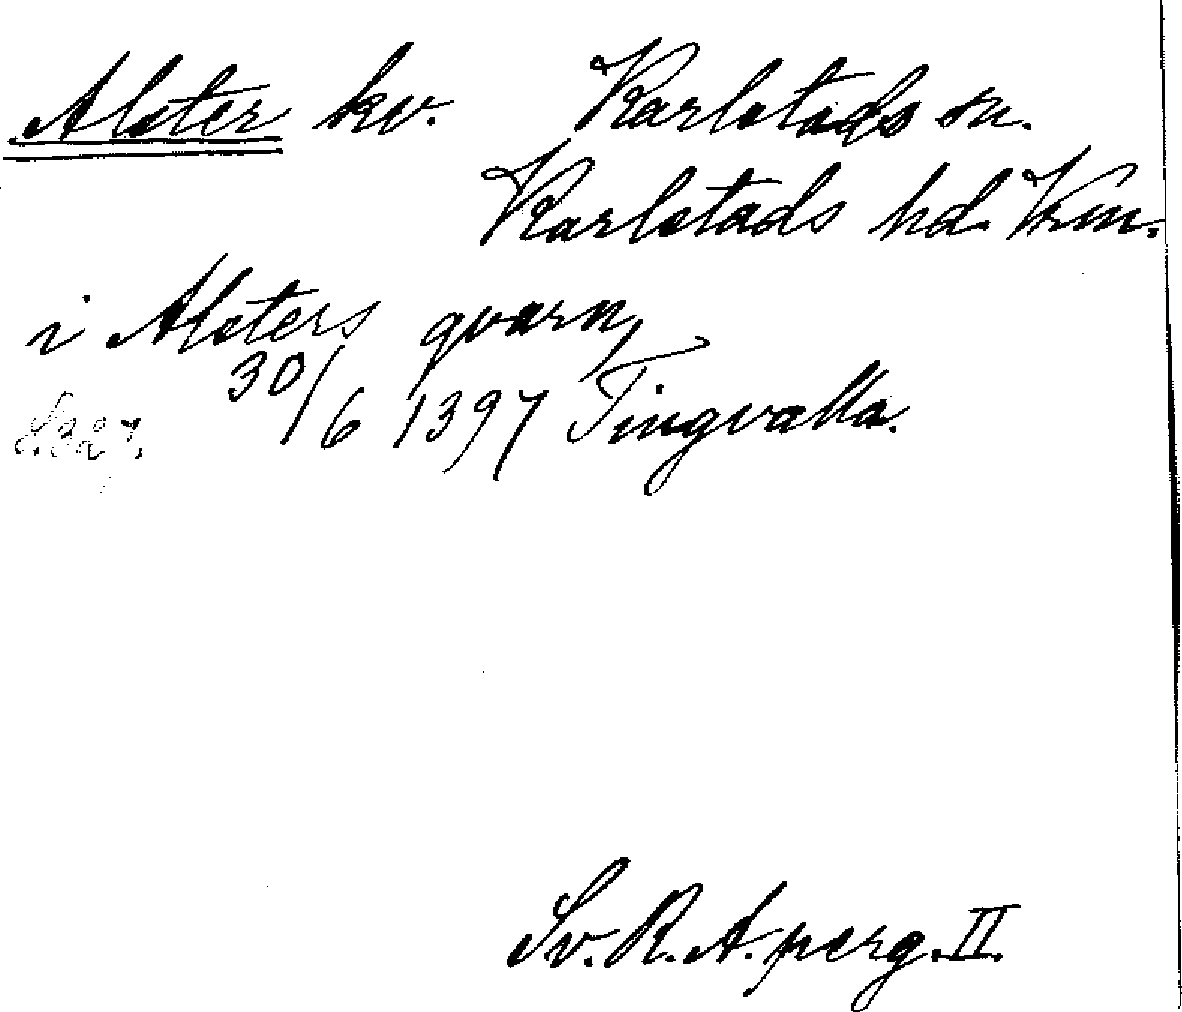 Alster kv. Karlstads sn.
Karlstads hd. Vrm.
i Alsters qvarn,
30/6 1397 Tingvalla.
S. 327.
Sv. R. A. perg. II.